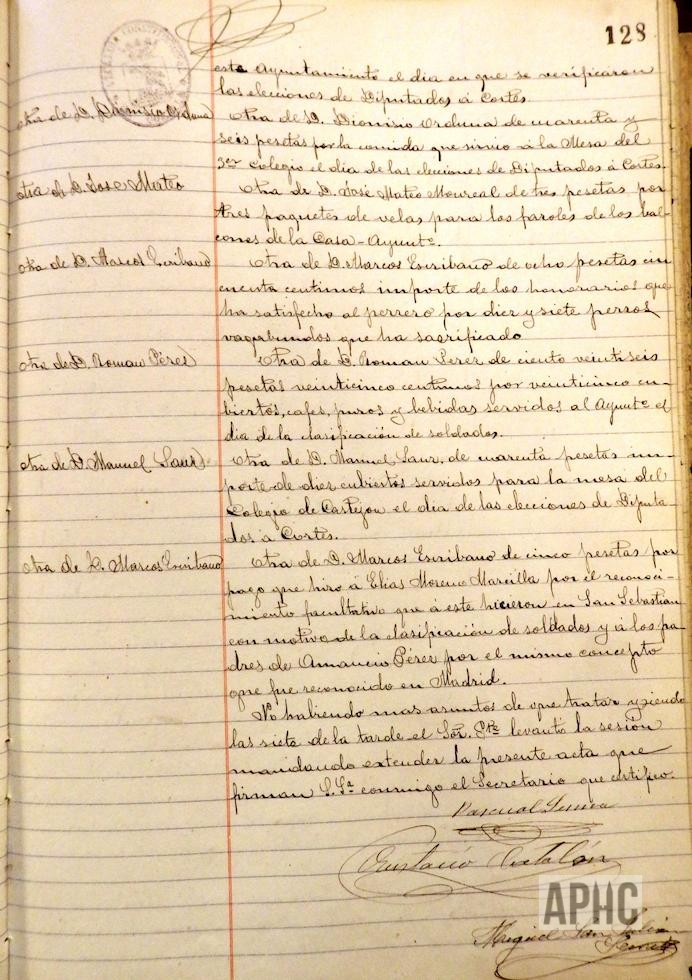 128
este Ayuntamiento el dia en que se verificaron
las elecciones de Diputados á Cortes.
otra de D. Dionisio Orduna
Otra de D. Dionisio Orduna de cuarenta y
seis pesetas por la comida que sirvió á la Mesa del
3er Colegio el dia de las elecciones de Diputados á Cortes.
otra de D. Jose Mateo
Otra de D. José Mateo Monreal de tres pesetas por
tres paquetes de velas para los faroles de los bal-
cones de la Casa-Ayunto.
otra de D. Marcos Escribano
Otra de D. Marcos Escribano de ocho pesetas cin
cuenta centimos importe de los honorarios que
ha satisfecho al perrero por diez y siete perros
vagabundos que ha sacrificado
otra de D. Roman Pérez
Otra de D. Roman Perez de ciento veintiseis
pesetas veinticinco centimos por veinticinco cu-
biertos, cafes, puros y bebidas servidos al Ayunto el
dia de la clasificación de soldados.
otra de D. Manuel Sanz
Otra de D. Manuel Sanz, de cuarenta pesetas im-
porte de diez cubiertos servidos para la mesa del
Colegio de Castejon el dia de las elecciones de Diputa-
dos á Cortes.
otra de D. Marcos Escribano
Otra de D. Marcos Escribano de cinco pesetas por
pago que hizo á Elias Moreno Marcilla por el reconoci-
miento facultativo que á este hicieron en San Sebastian
con motivo de la clasificación de soldados y á los pa-
dres de Amancio Pérez por el mismo concepto
que fue reconocido en Madrid.
No habiendo mas asuntos de que tratar y siendo
las siete de la tarde el Sor. Pte levantó la sesión
mandando extender la presente acta que
firman S. Sa conmigo el Secretario que certifico.
Pascual
Eustasio Catalán
APHC
Miguel San Julián